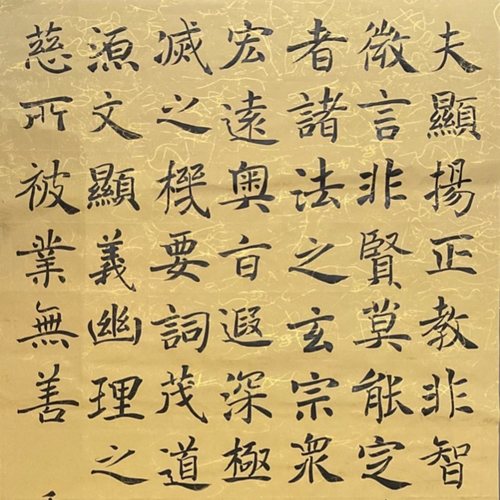 夫顯揚正教非智
微言非賢莫能定
者諸法之玄宗衆
宏遠奥旨遐深極
滅之機要詞茂道
源文顯義幽理之
慈所被業無善